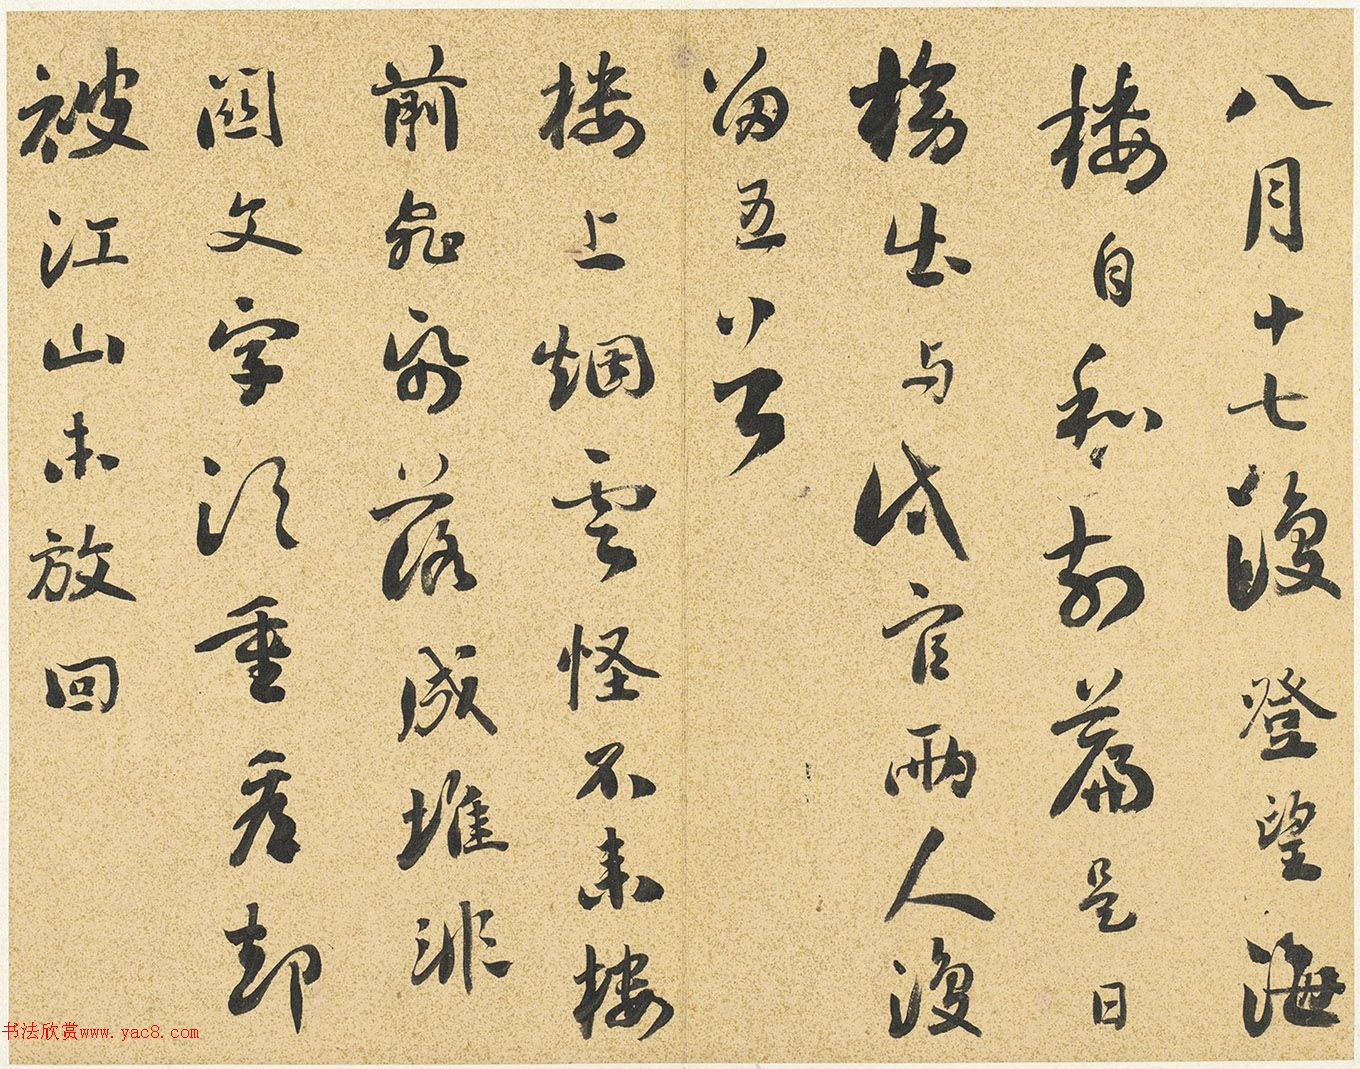 八月十七復登望海
樓自和前篇是日
榜出与試官兩人復
留五首
樓上烟雲怪不來樓
前飛紙落成堆非
關文字須重看却
被江山未放回
书法欣赏www.yac8.com